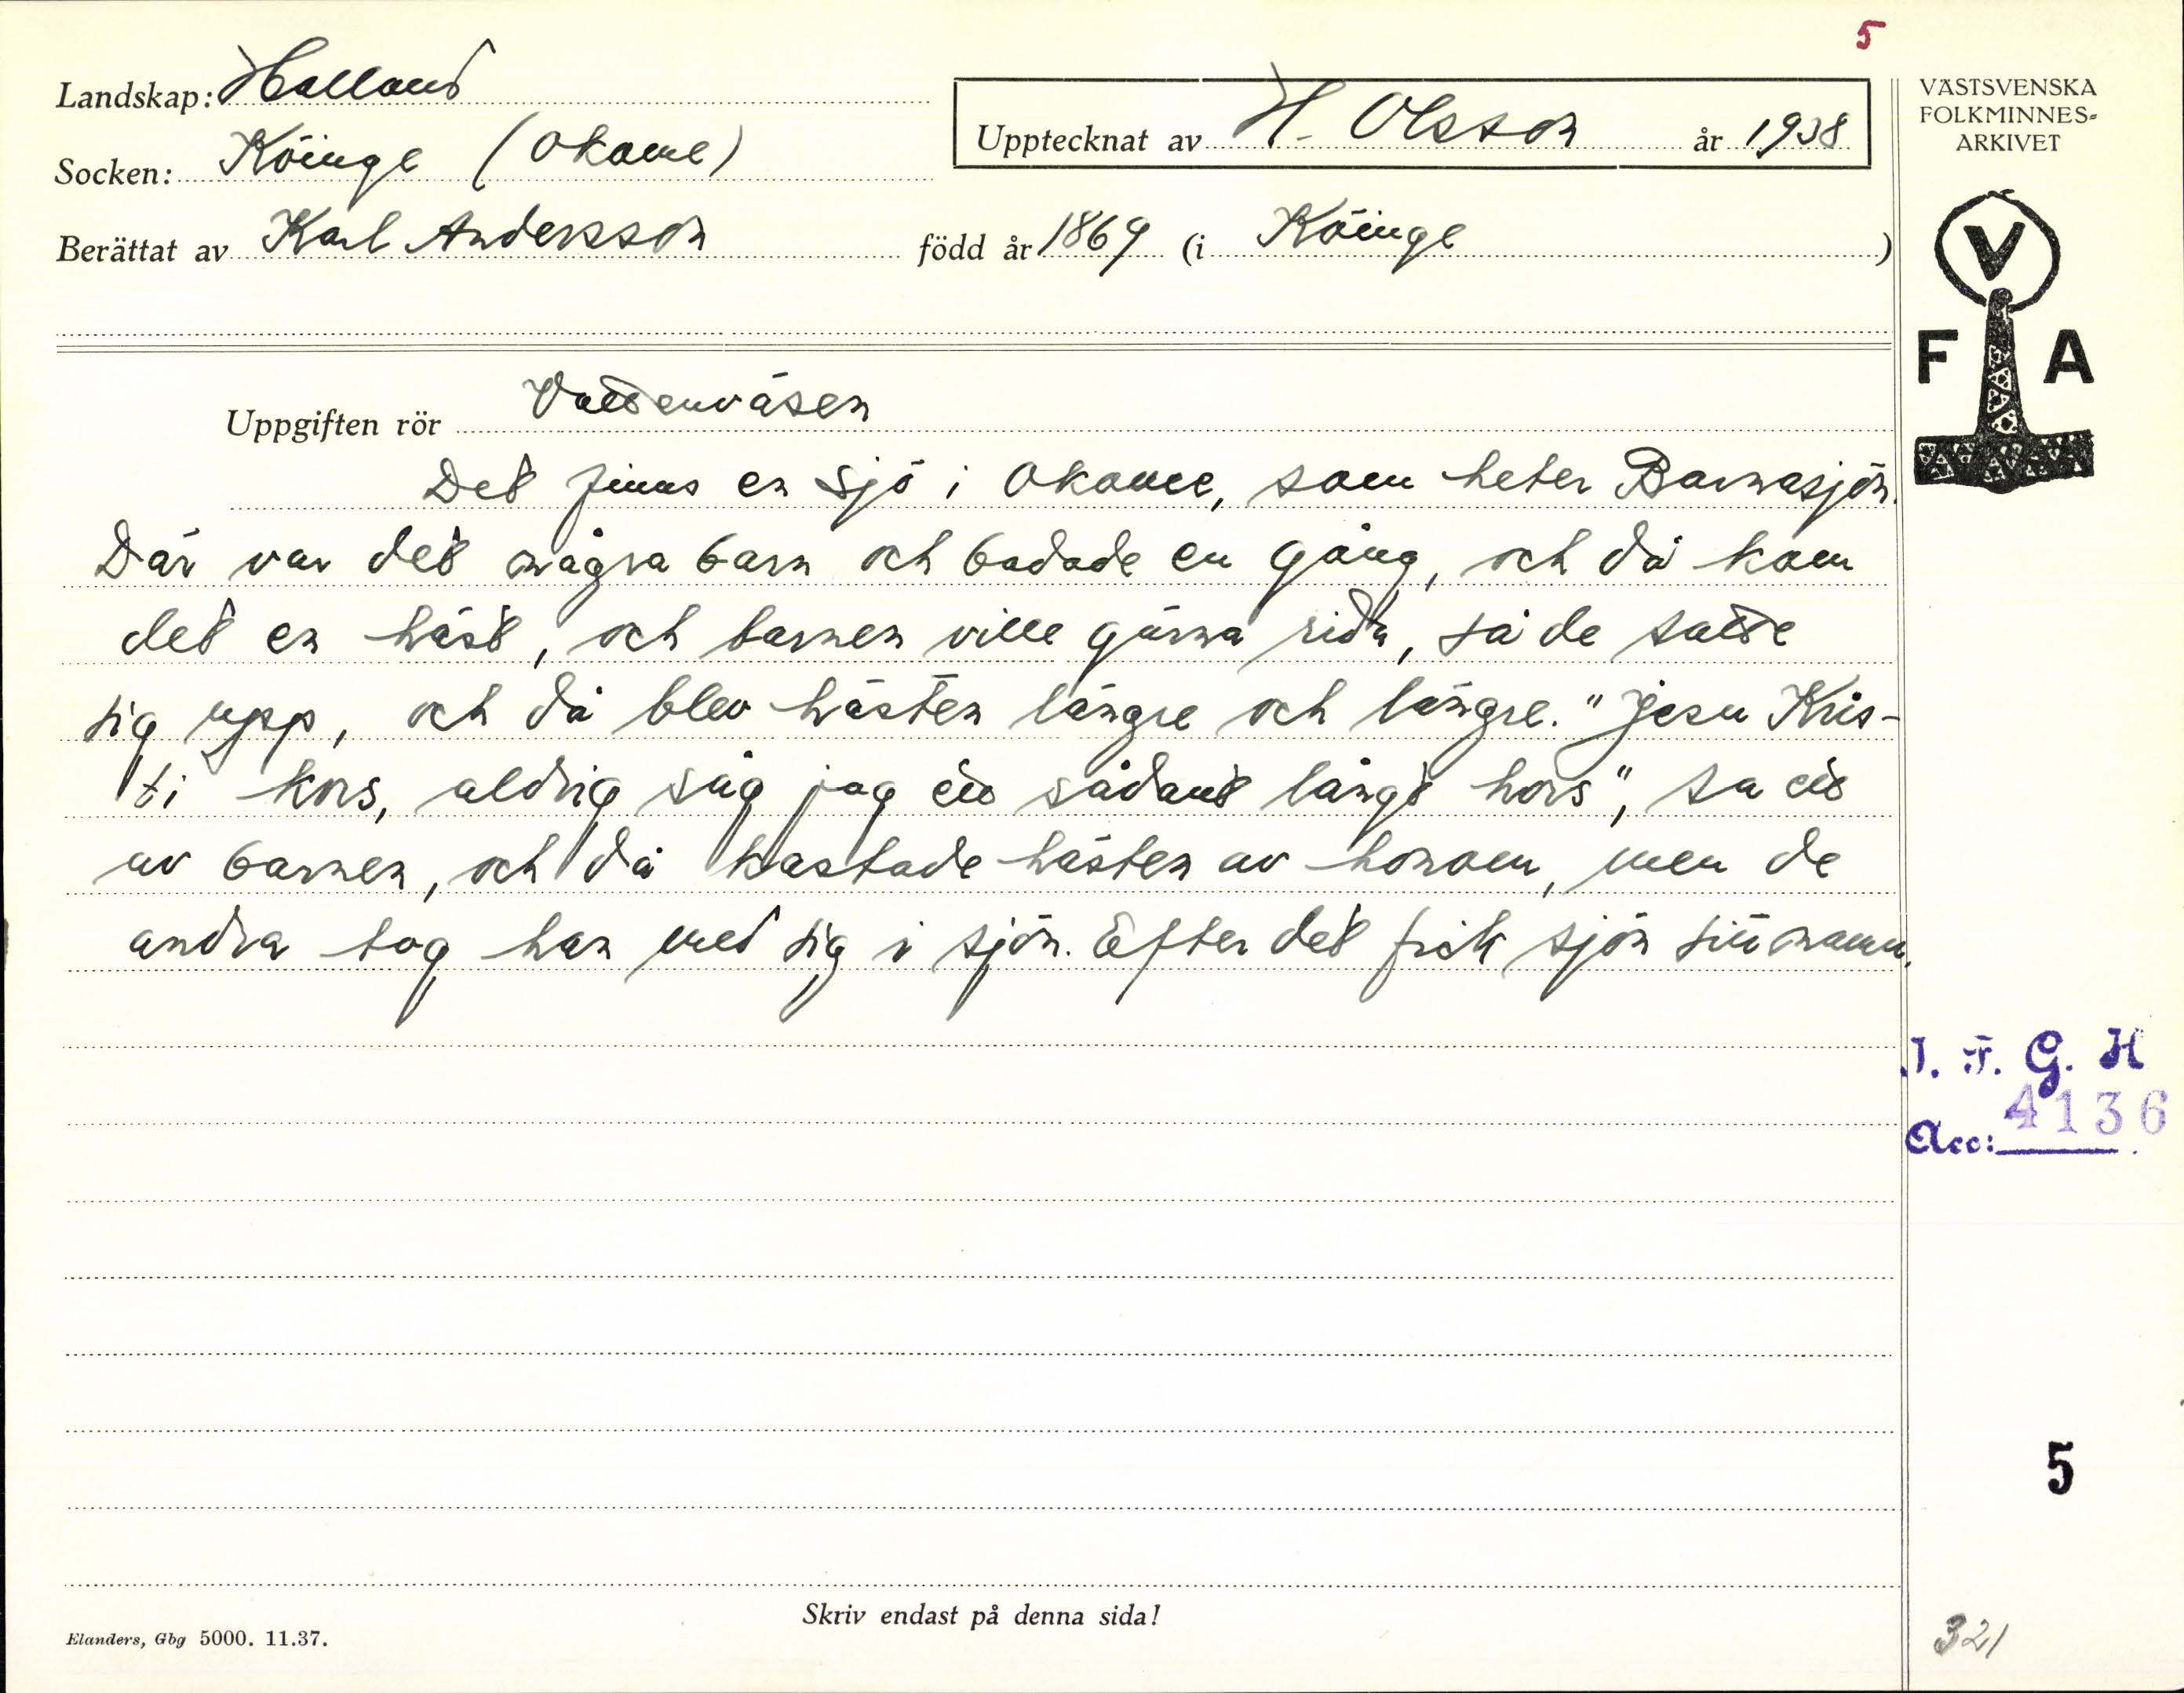 5
Landskap: Halland
Socken: Köinge (Okome)
Upptecknat av H. Olsson år 1938
Berättat av Karl Andersson född år 1869 (i Köinge )
VÄSTSVENSKA
FOLKMINNES-
ARKIVET
V
F A
Uppgiften rör Vattenväsen
Det finns en sjö i Okome, som heter Barnasjön.
Där var det några barn och badade en gång, och då kom
det en häst, och barnen ville gärna rida, så de satte
sig upp, och då blev hästen längre och längre. "Jesu Kris-
ti kors, aldrig såg jag ett sådant långt hors", sa ett
av barnen, och då kastade hästen av honom, men de
andra tog han med sig i sjön. Efter det fick sjön sitt namn.
I. F. G. H
4136
Acc:
5
Skriv endast på denna sida!
Elanders, Gbg 5000. 11.37.
321